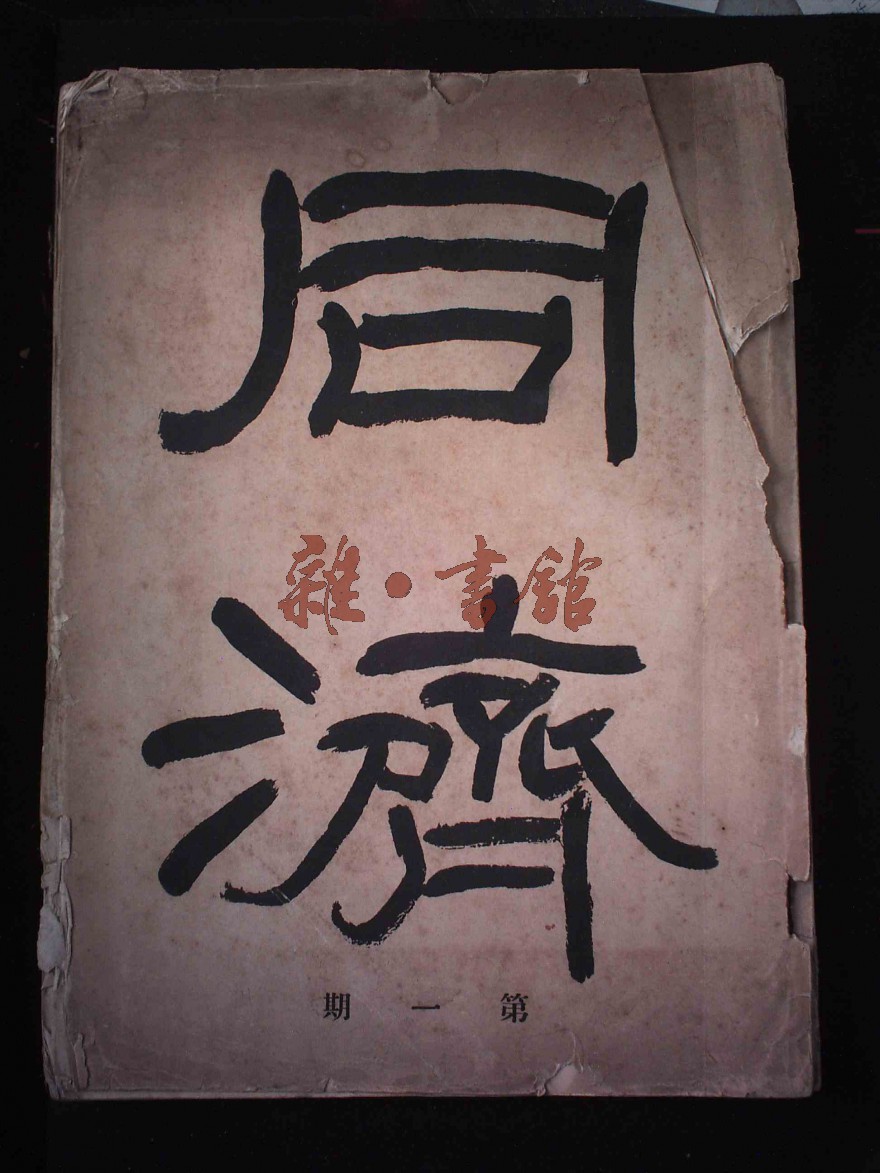 同
雜·書館
濟
第一期